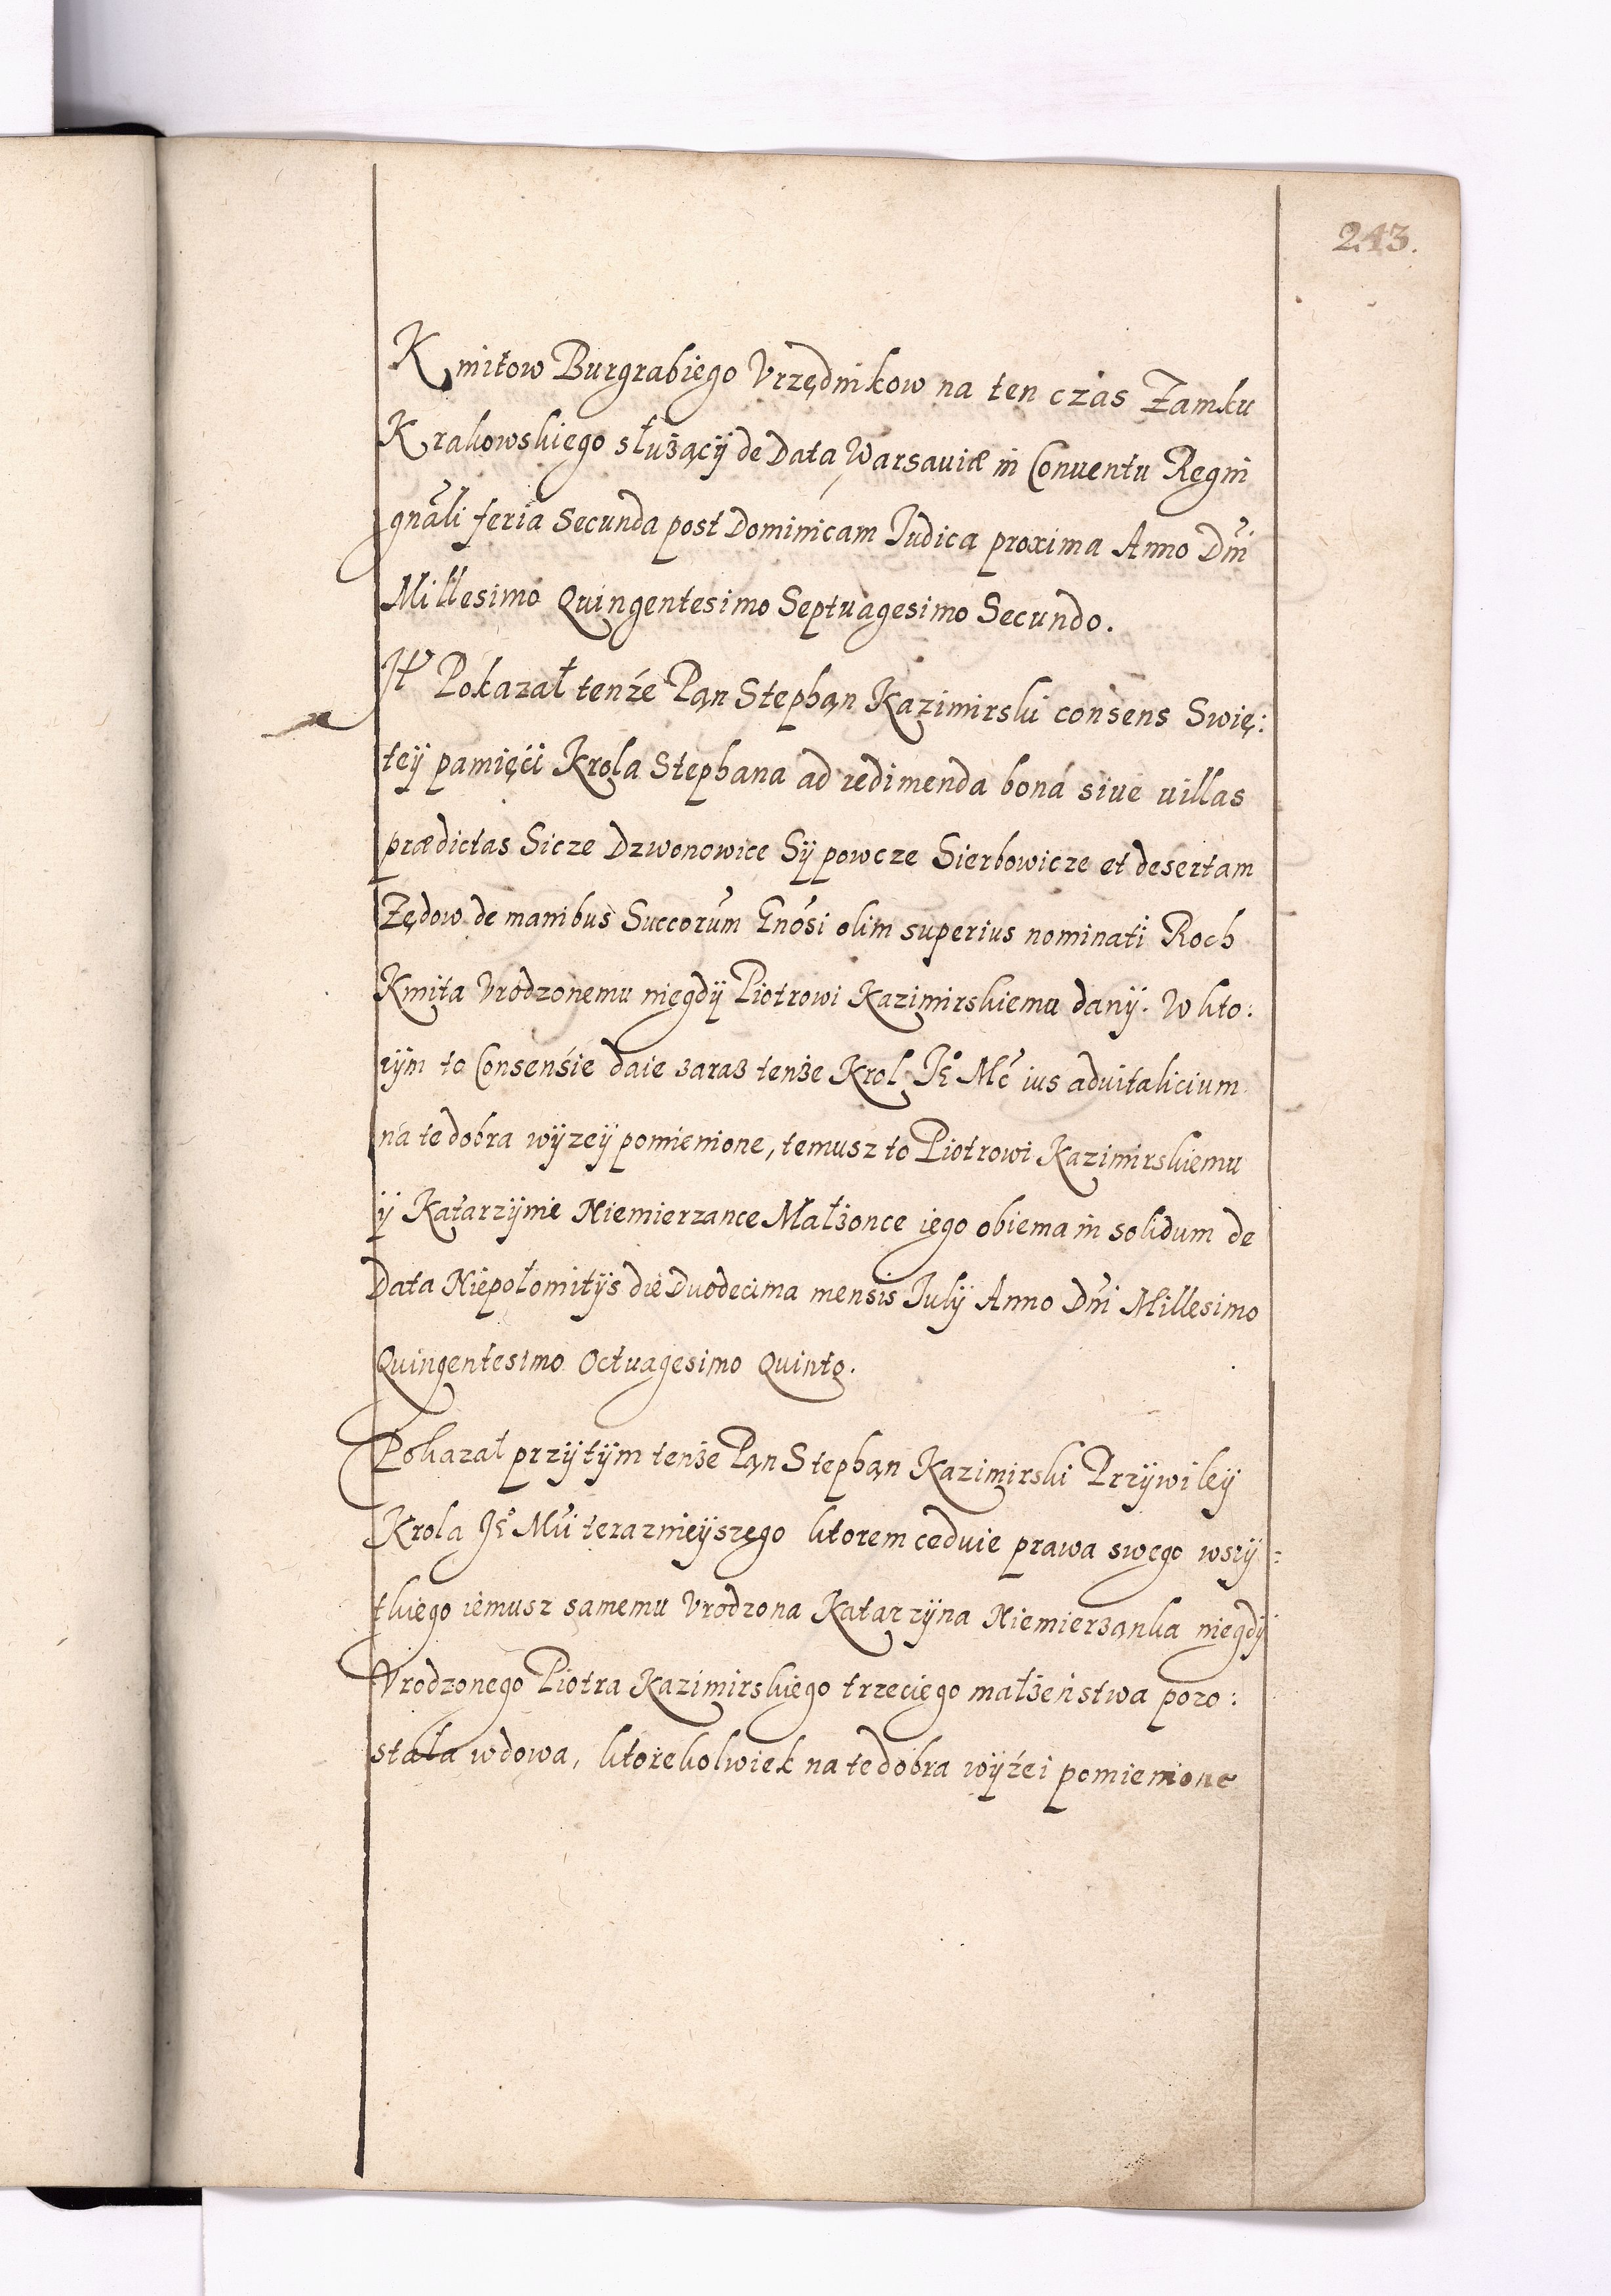 243.
Kmitow Burgrabiego Vrzędnikow na ten czas Zamku
Krakowskiego służącÿ de Data Warsauiæ in Conuentu Regni
gnãli feria Secunda post Dominicam Iudica proxima Anno Dñi
Millesimo Quingentesimo Septuagesimo Secundo.
Itͬ Pokazał tenże Pąn Stephąn Kazimirski consens Swię:
teÿ pamięći Krola Stephana ad redimenda bona siue uillas
prædictas Sicze Dzwonowice Sÿpowcze Sierbowicze et desertam
Zędow de manibus Succorum Gnosi olim superius nominati Roch
Kmita Vrodzonemu niegdÿ Piotrowi Kazimirskiemu danÿ. W kto:
rÿm to Consenśie daie zaraz tenże Krol Jᵉ Mć ius aduitalicium
na te dobra wÿzeÿ pomienione, temusz to Piotrowi Kazimirskiemu
ÿ Katarzÿnie Niemierzance Małżonce iego obiema in solidum de
Data Niepołomitÿs die Duodecima mensis Iulÿ Anno Dñi Millesimo
Quingentesimo Octuagesimo Quinto.
Pokazał przÿtÿm tenże Pąn Stephąn Kazimirski Przÿwileÿ
Krola Jᵉ Mći teraznieÿszego ktorem ceduie prawa swego wszÿ=
tkiego iemusz samemu Vrodzona Katarzÿna Niemierząnka niegdÿ
Vrodzonego Piotra Kazimirskiego trzeciego małżeństwa pozo:
stała wdowa, ktorekolwiek na te dobra wÿżei pomienione